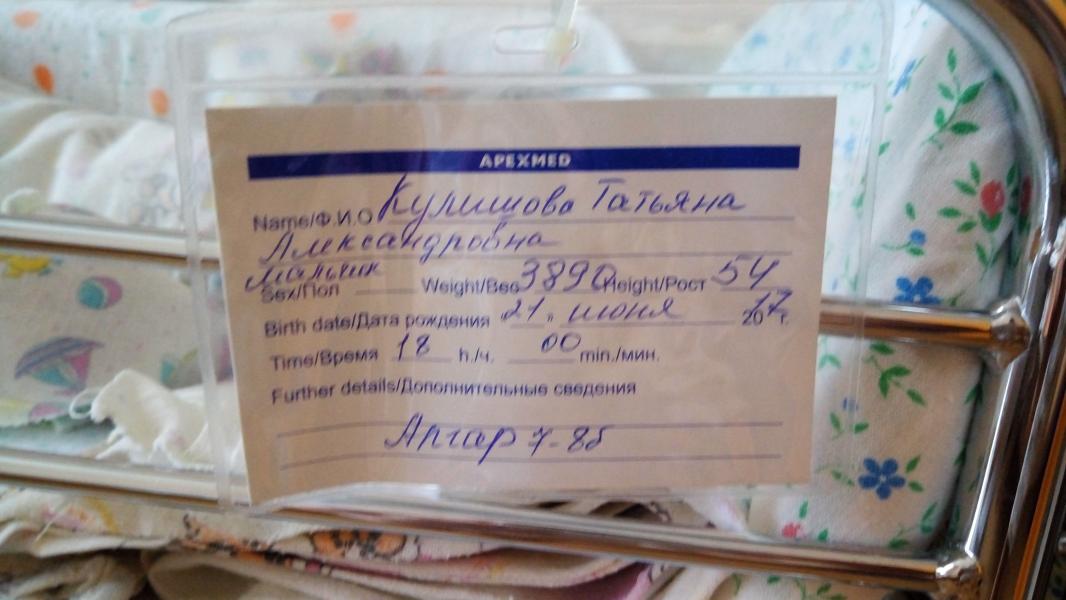 APEXMED
Name/Ф.И.О Кулишова Татьяна
Александровна
мальчик
Sex/Пол Weight/Вес 3890 Height/Рост 54
Birth date/Дата рождения 21 " июня 2017 г.
Time/Время 18 h./ч. 00 min./мин.
Further details/Дополнительные сведения
Апгар 7-8б